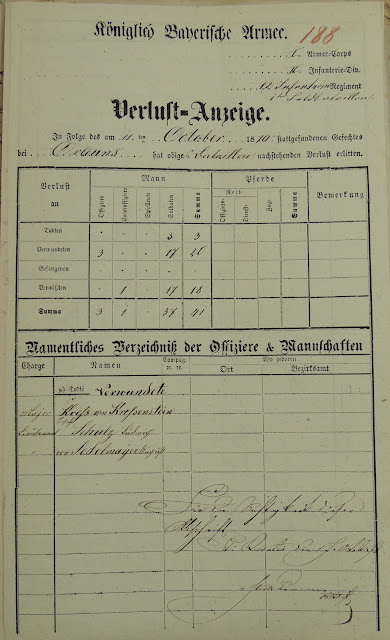 Königlich Bayerische Armee.
188
I. Armee-Corps
II. Infanterie-Div.
Infanterie Regiment
Verlust-Anzeige.
In Folge des am 11ten October 1870 stattgefundenen Gefechtes
bei Orleans hat obiges Bataillon nachstehenden Verlust erlitten.
Verlust an
Mann
Pferde
Bemerkung
Offiziere
Unteroffiziere
Spielleute
Soldaten
Summa
Reit-
Offiziers-
Dienst-
Zug-
Summa
Todten . . . 3 3
Verwundeten 3 . . 17 20
Gefangenen . . . . .
Vermißten . 1 . 17 18
Summa 3 1 . 37 41
Namentliches Verzeichniß der Offiziere & Mannschaften
Charge
Namen
Compag. nr.
Wo geboren
Ort
Bezirksamt
Verwundete
Major Kreß von Kreßenstein
Lieutenant Schultz Ludwig
" von Sedelmayer August
Für die Richtigkeit dieser
Abschrift